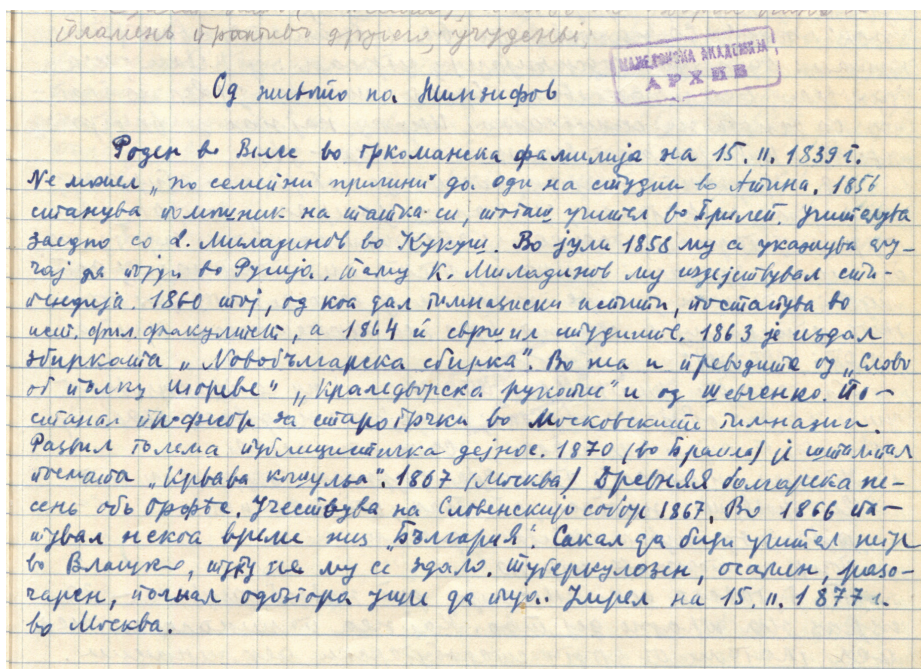 пламень противо другого, учудены,
МАКЕДОНСКА АКАДЕМИЈА
АРХИВ
Од животo на Жинзифов
Роден во Велес во гркоманска фамилија на 15. II. 1839 г.
Не можел „по семејни причини" да оди на студии во Атина. 1856
станува помошник на татка-си, тогаш учител во Прилеп. Учителува
заедно со Д. Миладинов во Кукуш. Во јули 1858 му се укажува слу-
чај да појди во Русија. Таму К. Миладинов му издејствувал сти-
пендија. 1860 тој, од коа дал гимназиски испити, постапува во
ист. фил. факултет, а 1864 и свршил студиите. 1863 је издал
збирката „Новобългарска сбирка". Во неа и преводите од „Слово
об пълку Игореве" „Краледворска рукопис" и од Шевченко. По-
станал професор за старогрчки во Московските гимназии.
Развил голема публицистичка дејнос. 1870 (во Браила) је штампал
поемата „Кръвава кошуля". 1867 (Москва) Древняя болгарска пе-
сень объ Орфѣе. Учествува на Словенскијо собор 1867. Во 1866 па-
тувал некоа време низ „България". Сакал да биди учител негде
во Влашко, туку не му се здало. Туберкулозен, осамен, разо-
чарен, почнал одозгора уште да пија. Умрел на 15. II. 1877 г.
во Москва.